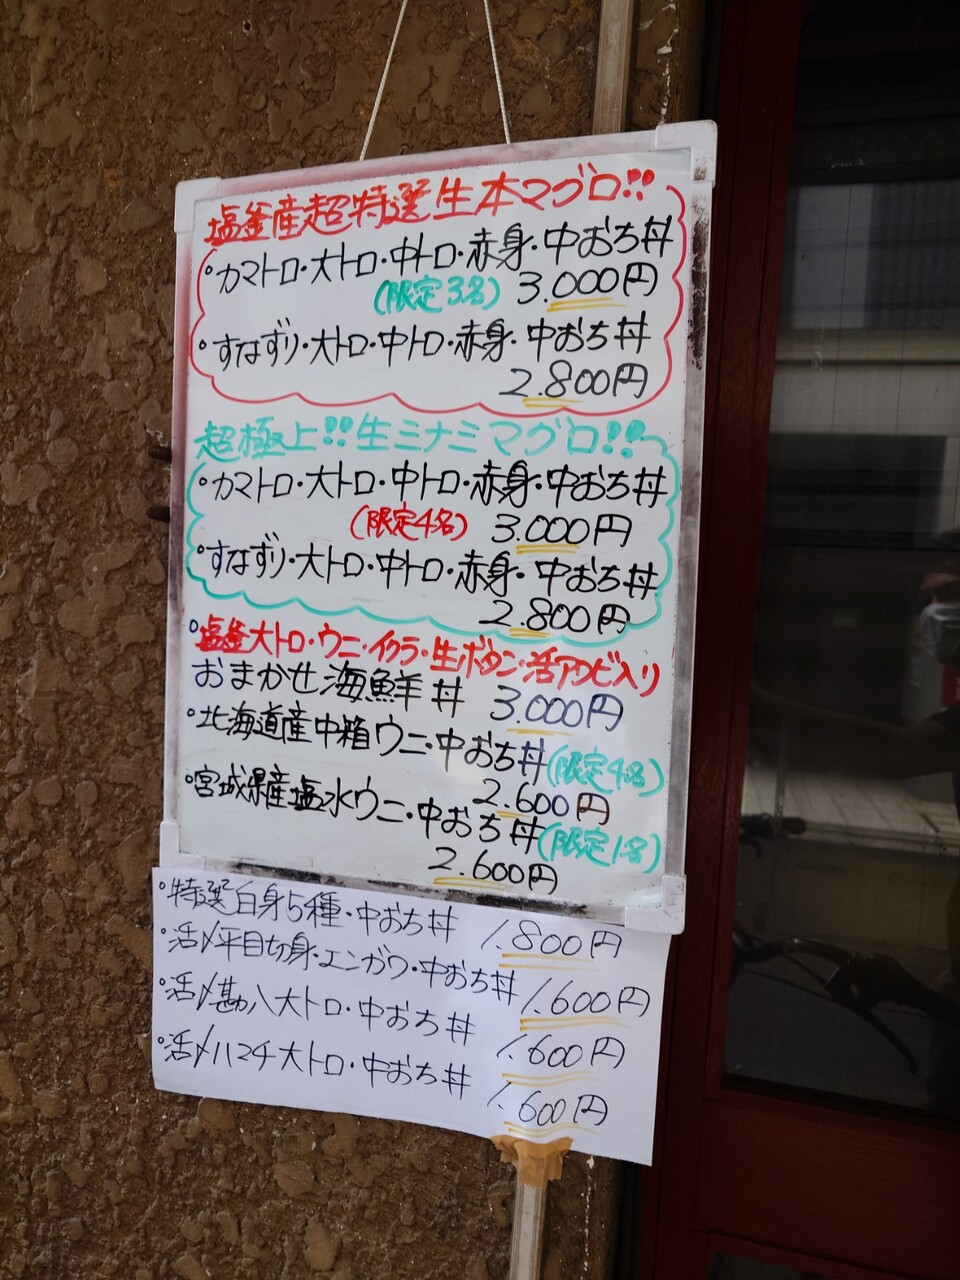 塩釜産超特選生本マグロ!!
°カマトロ・大トロ・中トロ・赤身・中おち丼
(限定3名) 3.000円
°すなずり・大トロ・中トロ・赤身・中おち丼
2.800円
超極上!!生ミナミマグロ!!
°カマトロ・大トロ・中トロ・赤身・中おち丼
(限定4名) 3.000円
°すなずり・大トロ・中トロ・赤身・中おち丼
2.800円
°塩釜大トロ・ウニ・イクラ・生ボタン・活アワビ入り
おまかせ海鮮丼 3.000円
°北海道産中箱ウニ・中おち丼(限定4名)
2.600円
°宮城県産塩水ウニ・中おち丼(限定1名)
2.600円
°特選白身5種・中おち丼 1.800円
°活〆平目切身・エンガワ・中おち丼 1.600円
°活〆勘八大トロ・中おち丼 1.600円
°活〆ハマチ大トロ・中おち丼 1.600円